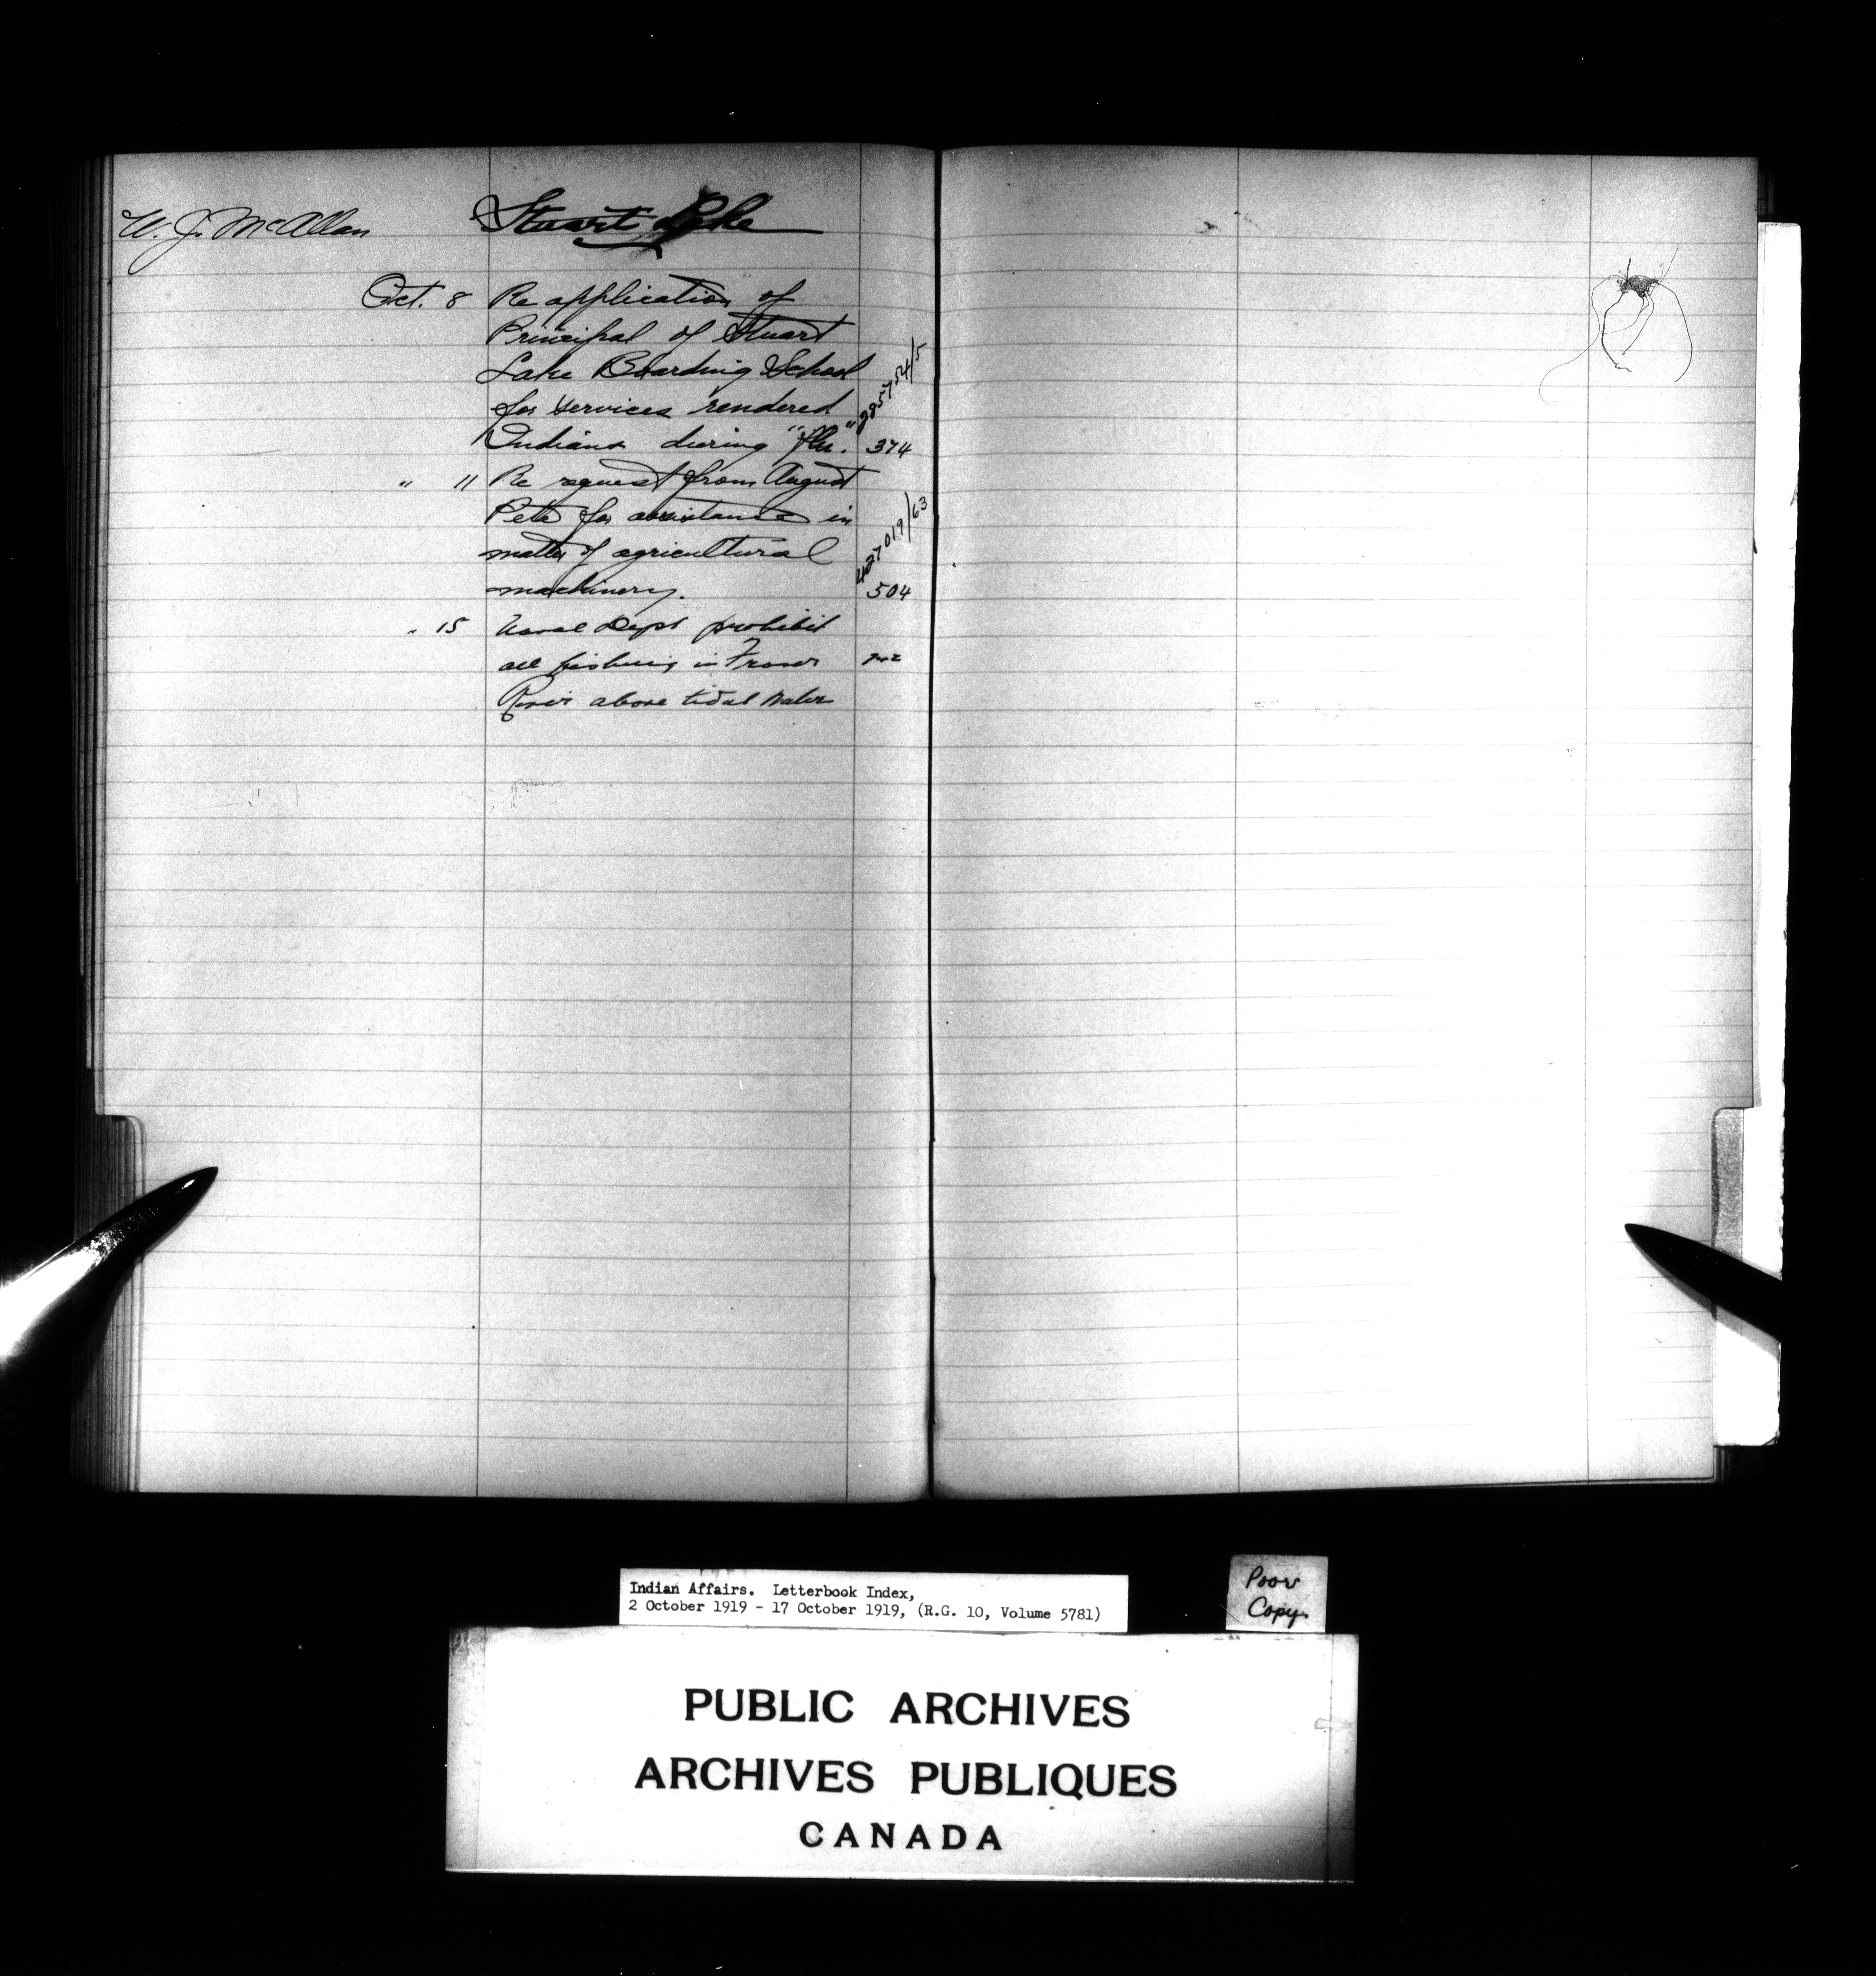 W. J. McAllan Stuart Lake
Oct. 8 Re application of
Principal of Stuart
Lake Boarding School
for services rendered
Indians during "flu." 374
" 11 Re request from August
Pete for assistance in
matter of agricultural 427019/63
machinery. 504
" 15 Naval Dept prohibit
all fishing in Fraser
River above tidal water
Indian Affairs. Letterbook Index,
2 October 1919 - 17 October 1919, (R.G. 10, Volume 5781)
Poor
Copy.
PUBLIC ARCHIVES
ARCHIVES PUBLIQUES
CANADA